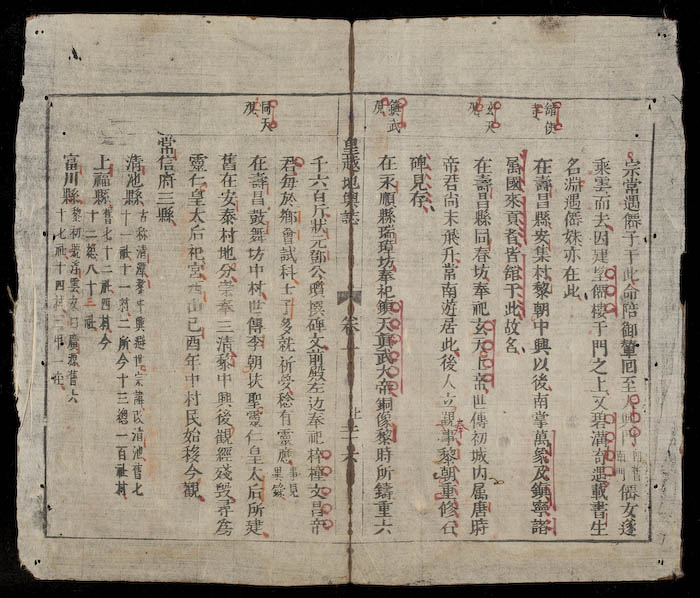 宗常遇僊子于此命陪御輦回至大興門 南門 僊女遂
乘雲而去因建望僊樓于門之上又碧溝奇遇載書生
名淵遇僊姝亦在此
在壽昌縣安集村黎朝中興以後南掌萬象及鎮寧諧
蠻國來貢者皆館于此故名
玄天觀
在壽昌縣同春坊奉祀玄天上帝世傳初城内属唐時
帝君尚未飛升常南遊居此後人立觀事黎朝重修石
碑見存
鎮武觀
在永順縣瑞璋坊奉祀鎮天眞武大帝銅像黎時所鑄重六
皇越地輿誌 卷一
千六百斤狀元鄧公瓚撰碑文前殿左边奉祀梓橦文昌帝
君每於鄉會試科士子多就祈夢稔有靈應 事見
同天觀
在壽昌鼓舞坊中村世傳李朝扶聖靈仁皇太后所建
舊在安泰村地分崇奉三清黎中興後觀經殘毀尋為
靈仁皇太后祀宮西山己酉年中村民始移今觀
常信府三縣
清池縣 古称清潭黎中興避世宗諱改清池舊七
十一社十一村二所今十三總一百社村
上福縣 舊七十二社四村今
十二總八十三社
富川縣 黎初號浮雲舊六
十七社十四村